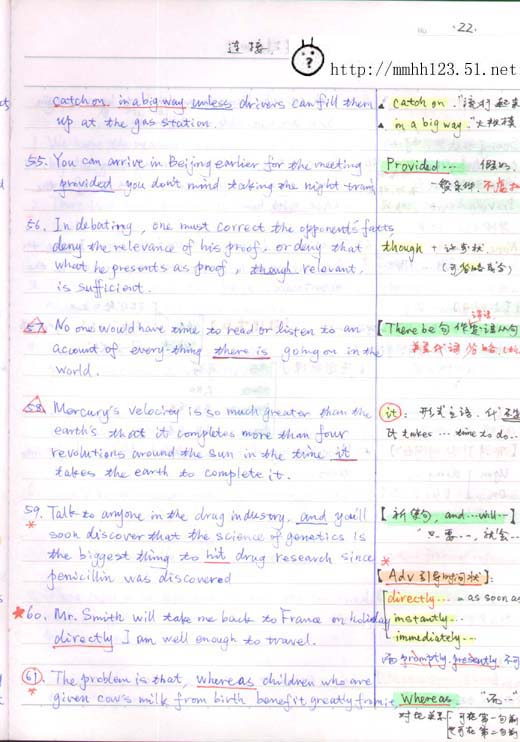 No. 22.
连接
?
http://mmhh123.51.net
catch on in a big way unless drivers can fill them
up at the gas station.
55. You can arrive in Beijing earlier for the meeting
provided you don't mind taking the night train
56. In debating, one must correct the opponent's facts
deny the relevance of his proof, or deny that
what he presents as proof, though relevant,
is sufficient.
57. No one would have time to read or listen to an
account of every-thing there is going on in the
world.
58. Mercury's velocity is so much greater than the
earth's that it completes more than four
revolutions around the sun in the time it
takes the earth to complete it.
59. Talk to anyone in the drug industry, and you'll
soon discover that the science of genetics is
the biggest thing to hit drug research since
penicillin was discovered
60. Mr. Smith will take me back to France on holiday
directly I am well enough to travel.
61. The problem is that, whereas children who are
given cow's milk from birth benefit greatly from it,
catch on. "流行起来
in a big way. "大规模
Provided... 假如.
though +
(可省略
[There be 句作定语从句
关系代词省略,
it: 形式主语.
It takes ... time to do..
[祈使句, and...will...]
"只要..., 就会...
[Adv 引导时间状]:
directly... = as soon as
instantly...
immediately...
而 promptly, presently 不可
whereas... "而..."
对比关系: 可在第一句前
也可在第二句前